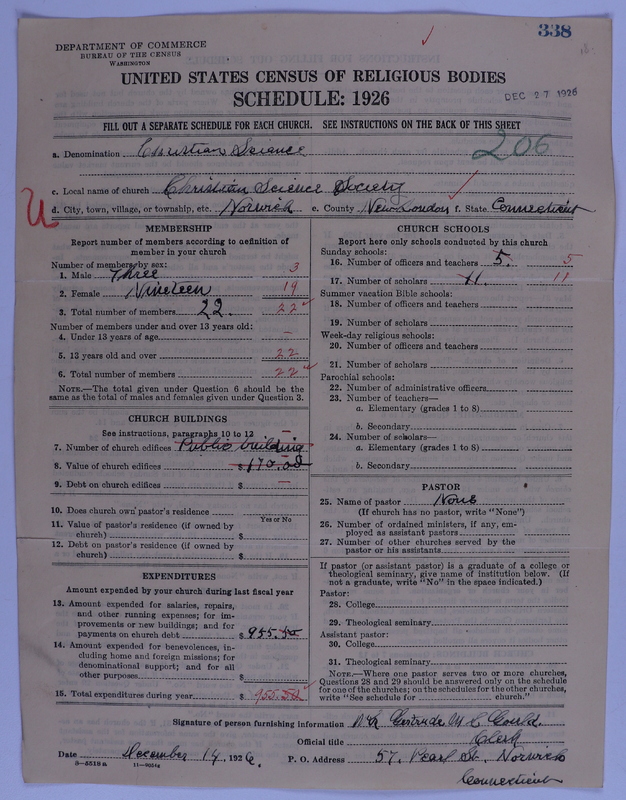 338
DEPARTMENT OF COMMERCE
BUREAU OF THE CENSUS
WASHINGTON
UNITED STATES CENSUS OF RELIGIOUS BODIES
SCHEDULE: 1926
DEC 27 1926
FILL OUT A SEPARATE SCHEDULE FOR EACH CHURCH. SEE INSTRUCTIONS ON THE BACK OF THIS SHEET
a. Denomination Christian Science
206
c. Local name of church Christian Science Society
U
d. City, town, village, or township, etc. Norwich e. County New London f. State Connecticut
MEMBERSHIP
Report number of members according to definition of
member in your church
Number of members by sex:
1. Male Three 3
2. Female Nineteen 19
3. Total number of members 22. 22
Number of members under and over 13 years old:
4. Under 13 years of age —
5. 13 years old and over 22
6. Total number of members 22
NOTE.—The total given under Question 6 should be
same as the total of males and females given under Question 3.
CHURCH BUILDINGS
See instructions, paragraphs 10 to 12
7. Number of church edifices Public building —
8. Value of church edifices $170.00
9. Debt on church edifices $ —
10. Does church own pastor's residence
Yes or No
11. Value of pastor's residence (if owned by
church) $
12. Debt on pastor's residence (if owned by
church) $
EXPENDITURES
Amount expended by your church during last fiscal year
13. Amount expended for salaries, repairs,
and other running expenses; for im-
provements or new buildings; and for
payments on church debt $955.50
14. Amount expended for benevolences, in-
cluding home and foreign missions; for
denominational support; and for all
other purposes $
15. Total expenditures during year $955.50
CHURCH SCHOOLS
Report here only schools conducted by this church
Sunday schools:
16. Number of officers and teachers 5. 5
17. Number of scholars 11. 11
Summer vacation Bible schools:
18. Number of officers and teachers
19. Number of scholars
Week-day religious schools:
20. Number of officers and teachers
21. Number of scholars
Parochial schools:
22. Number of administrative officers
23. Number of teachers—
a. Elementary (grades 1 to 8)
b. Secondary
24. Number of scholars—
a. Elementary (grades 1 to 8)
b. Secondary
PASTOR
25. Name of pastor None
(If church has no pastor, write "None")
26. Number of ordained ministers, if any, em-
ployed as assistant pastors
27. Number of other churches served by the
pastor or his assistants
If pastor (or assistant pastor) is a graduate of a college or
theological seminary, give name of institution below. (If
not a graduate, write "No" in the space indicated.)
Pastor:
28. College
29. Theological seminary
Assistant pastor:
30. College
31. Theological seminary
NOTE.—Where one pastor serves two or more churches,
Questions 28 and 29 should be answered only on the schedule
for one of the churches; on the schedules for the other churches,
write "See schedule for church."
Signature of person furnishing information Gertrude M C Gould
Official title Clerk
Date December 14, 1926. P. O. Address 57. Pearl St. Norwich
Connecticut
8-5518a 11-9034a